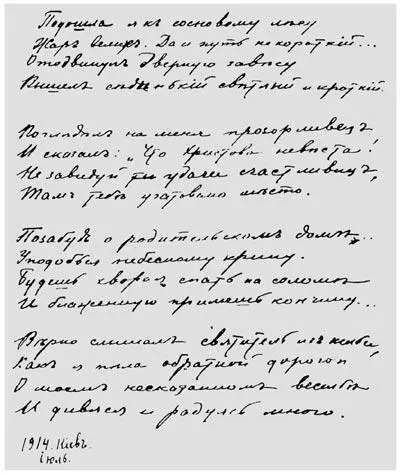 Подошла я къ сосновому лѣсу
Жаръ великъ. Да и путь не короткій...
Отодвинулъ дверную завѣсу
Вышелъ сѣденькій свѣтлый и кроткій.
Поглядѣлъ на меня прозорливецъ
И сказалъ: „Что Христова невѣста!
Не завидуй ты удачи счастливицъ,
Тамъ тебѣ уготовано мѣсто.
Позабудь о родительскомъ домѣ...
Уподобься небесному крину.
Будешь хворая спать на соломѣ
И блаженную примешь кончину...
Вѣрно слышалъ святитель изъ кельи,
Какъ я пѣла обратной дорогой
О моемъ несказанномъ весельѣ
И дивяся и радуясь много.
1914. Кіевъ.
Іюль.